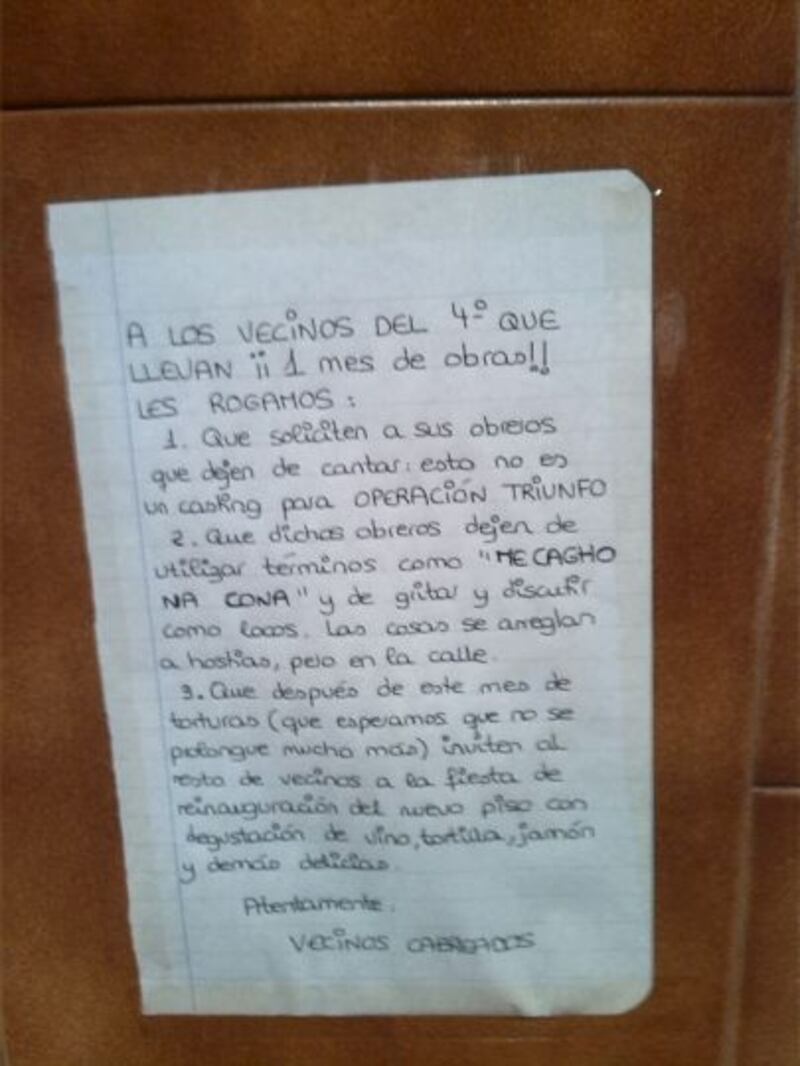 A LOS VECINOS DEL 4º QUE
LLEVAN ¡¡ 1 mes de obras!!
LES ROGAMOS:
1. Que soliciten a sus obreros
que dejen de cantar: esto no es
un casting para OPERACIÓN TRIUNFO
2. Que dichos obreros dejen de
utilizar términos como "ME CAGHO
NA CONA" y de gritar y discutir
como locos. Las cosas se arreglan
a hostias, pero en la calle.
3. Que después de este mes de
torturas (que esperamos que no se
prolongue mucho más) inviten al
resto de vecinos a la fiesta de
reinauguración del nuevo piso con
degustación de vino, tortilla, jamón
y demás delicias.
Atentamente.
VECINOS CABREADOS